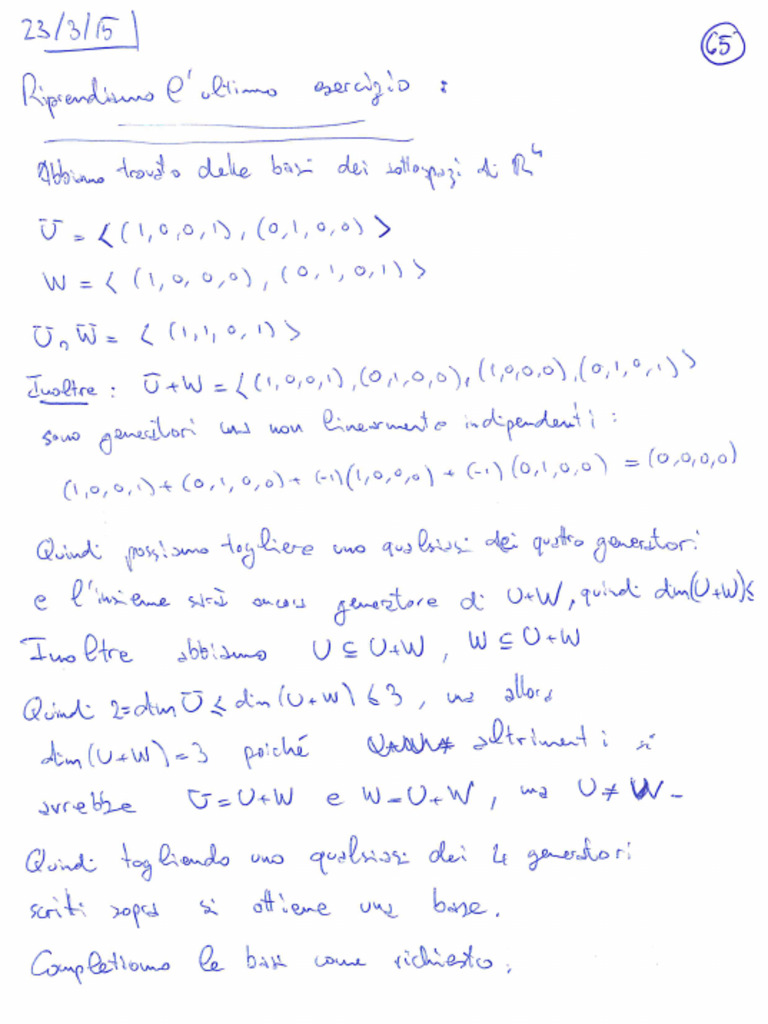 23/3/15
65
Riprendiamo l'ultimo esercizio :
Abbiamo trovato delle basi dei sottospazi di R⁴
U = < (1,0,0,1), (0,1,0,0) >
W = < (1,0,0,0), (0,1,0,1) >
U∩W = < (1,1,0,1) >
Inoltre : U+W = <(1,0,0,1),(0,1,0,0),(1,0,0,0),(0,1,0,1)>
sono generatori ma non linearmente indipendenti :
(1,0,0,1)+(0,1,0,0)+(-1)(1,0,0,0)+(-1)(0,1,0,0) = (0,0,0,0)
Quindi possiamo togliere uno qualsiasi dei quattro generatori
e l'insieme sarà ancora generatore di U+W, quindi dim(U+W)≤
Inoltre abbiamo U ⊆ U+W , W ⊆ U+W
Quindi 2=dim U ≤ dim (U+W) ≤ 3 , ma allora
dim (U+W) = 3 poiché altrimenti si
avrebbe U = U+W e W = U+W , ma U ≠ W -
Quindi togliendo uno qualsiasi dei 4 generatori
scritti sopra si ottiene una base.
Completiamo le basi come richiesto.